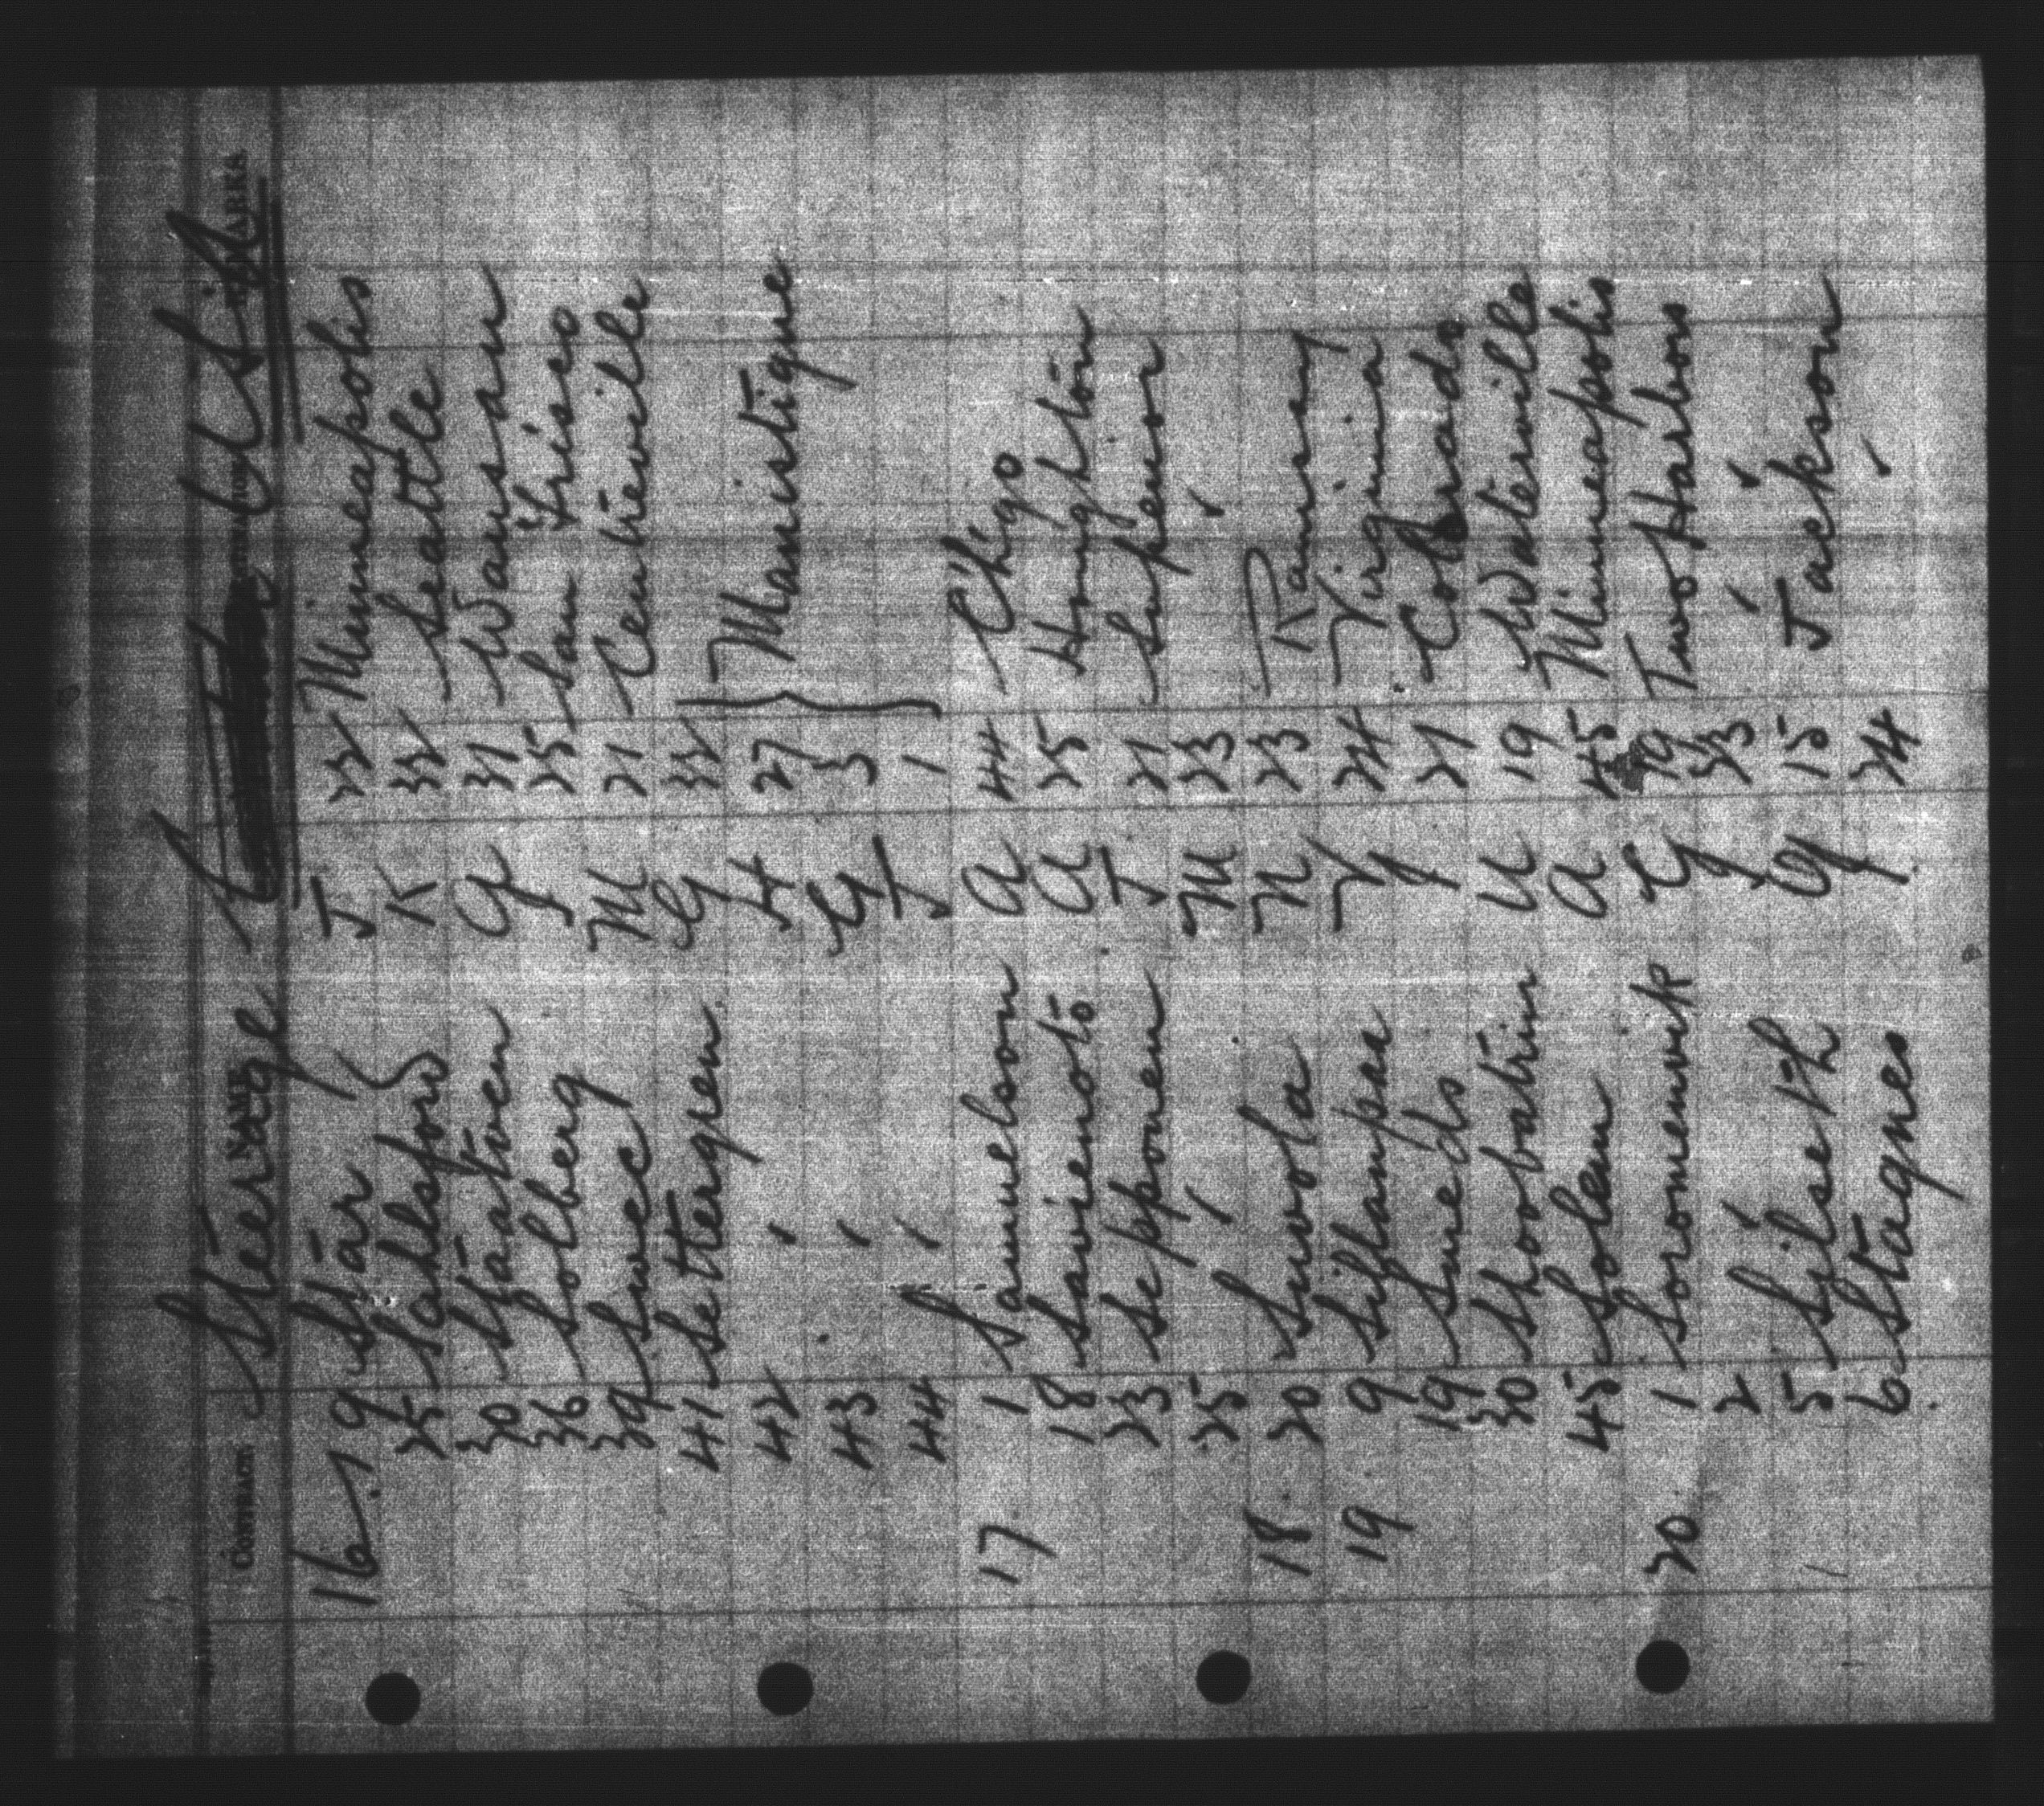 Steerage
CONTRACT NAME
16 19 Stär J 22 Minneapolis
25 Sahlsford K 32 Seattle
30 Staatven A 31 Wausau
36 Solberg J 25 San Frisco
39 Swec M 21 Centreville
41 Settergren G 32
42 " H 27 Manistique
43 " G 3
44 " J 1
17 1 Samuelson A 44 Ch'go
18 Savienoto A 25 Houghton
23 Sepponen J 21 Superior
25 " M 23 "
18 20 Suvola N 23 Ramsay
19 9 Siflanpaa V 24 Virginia
19 Sueds J 21 Colorado
30 Skoobatrin N 19 Waterville
45 Solem A 45 Minneapolis
20 1 Soromenvik G 19 Two Harbors
2 " J 23 " "
5 Silseth G 15 Jackson
6 Stagnes J 24 "